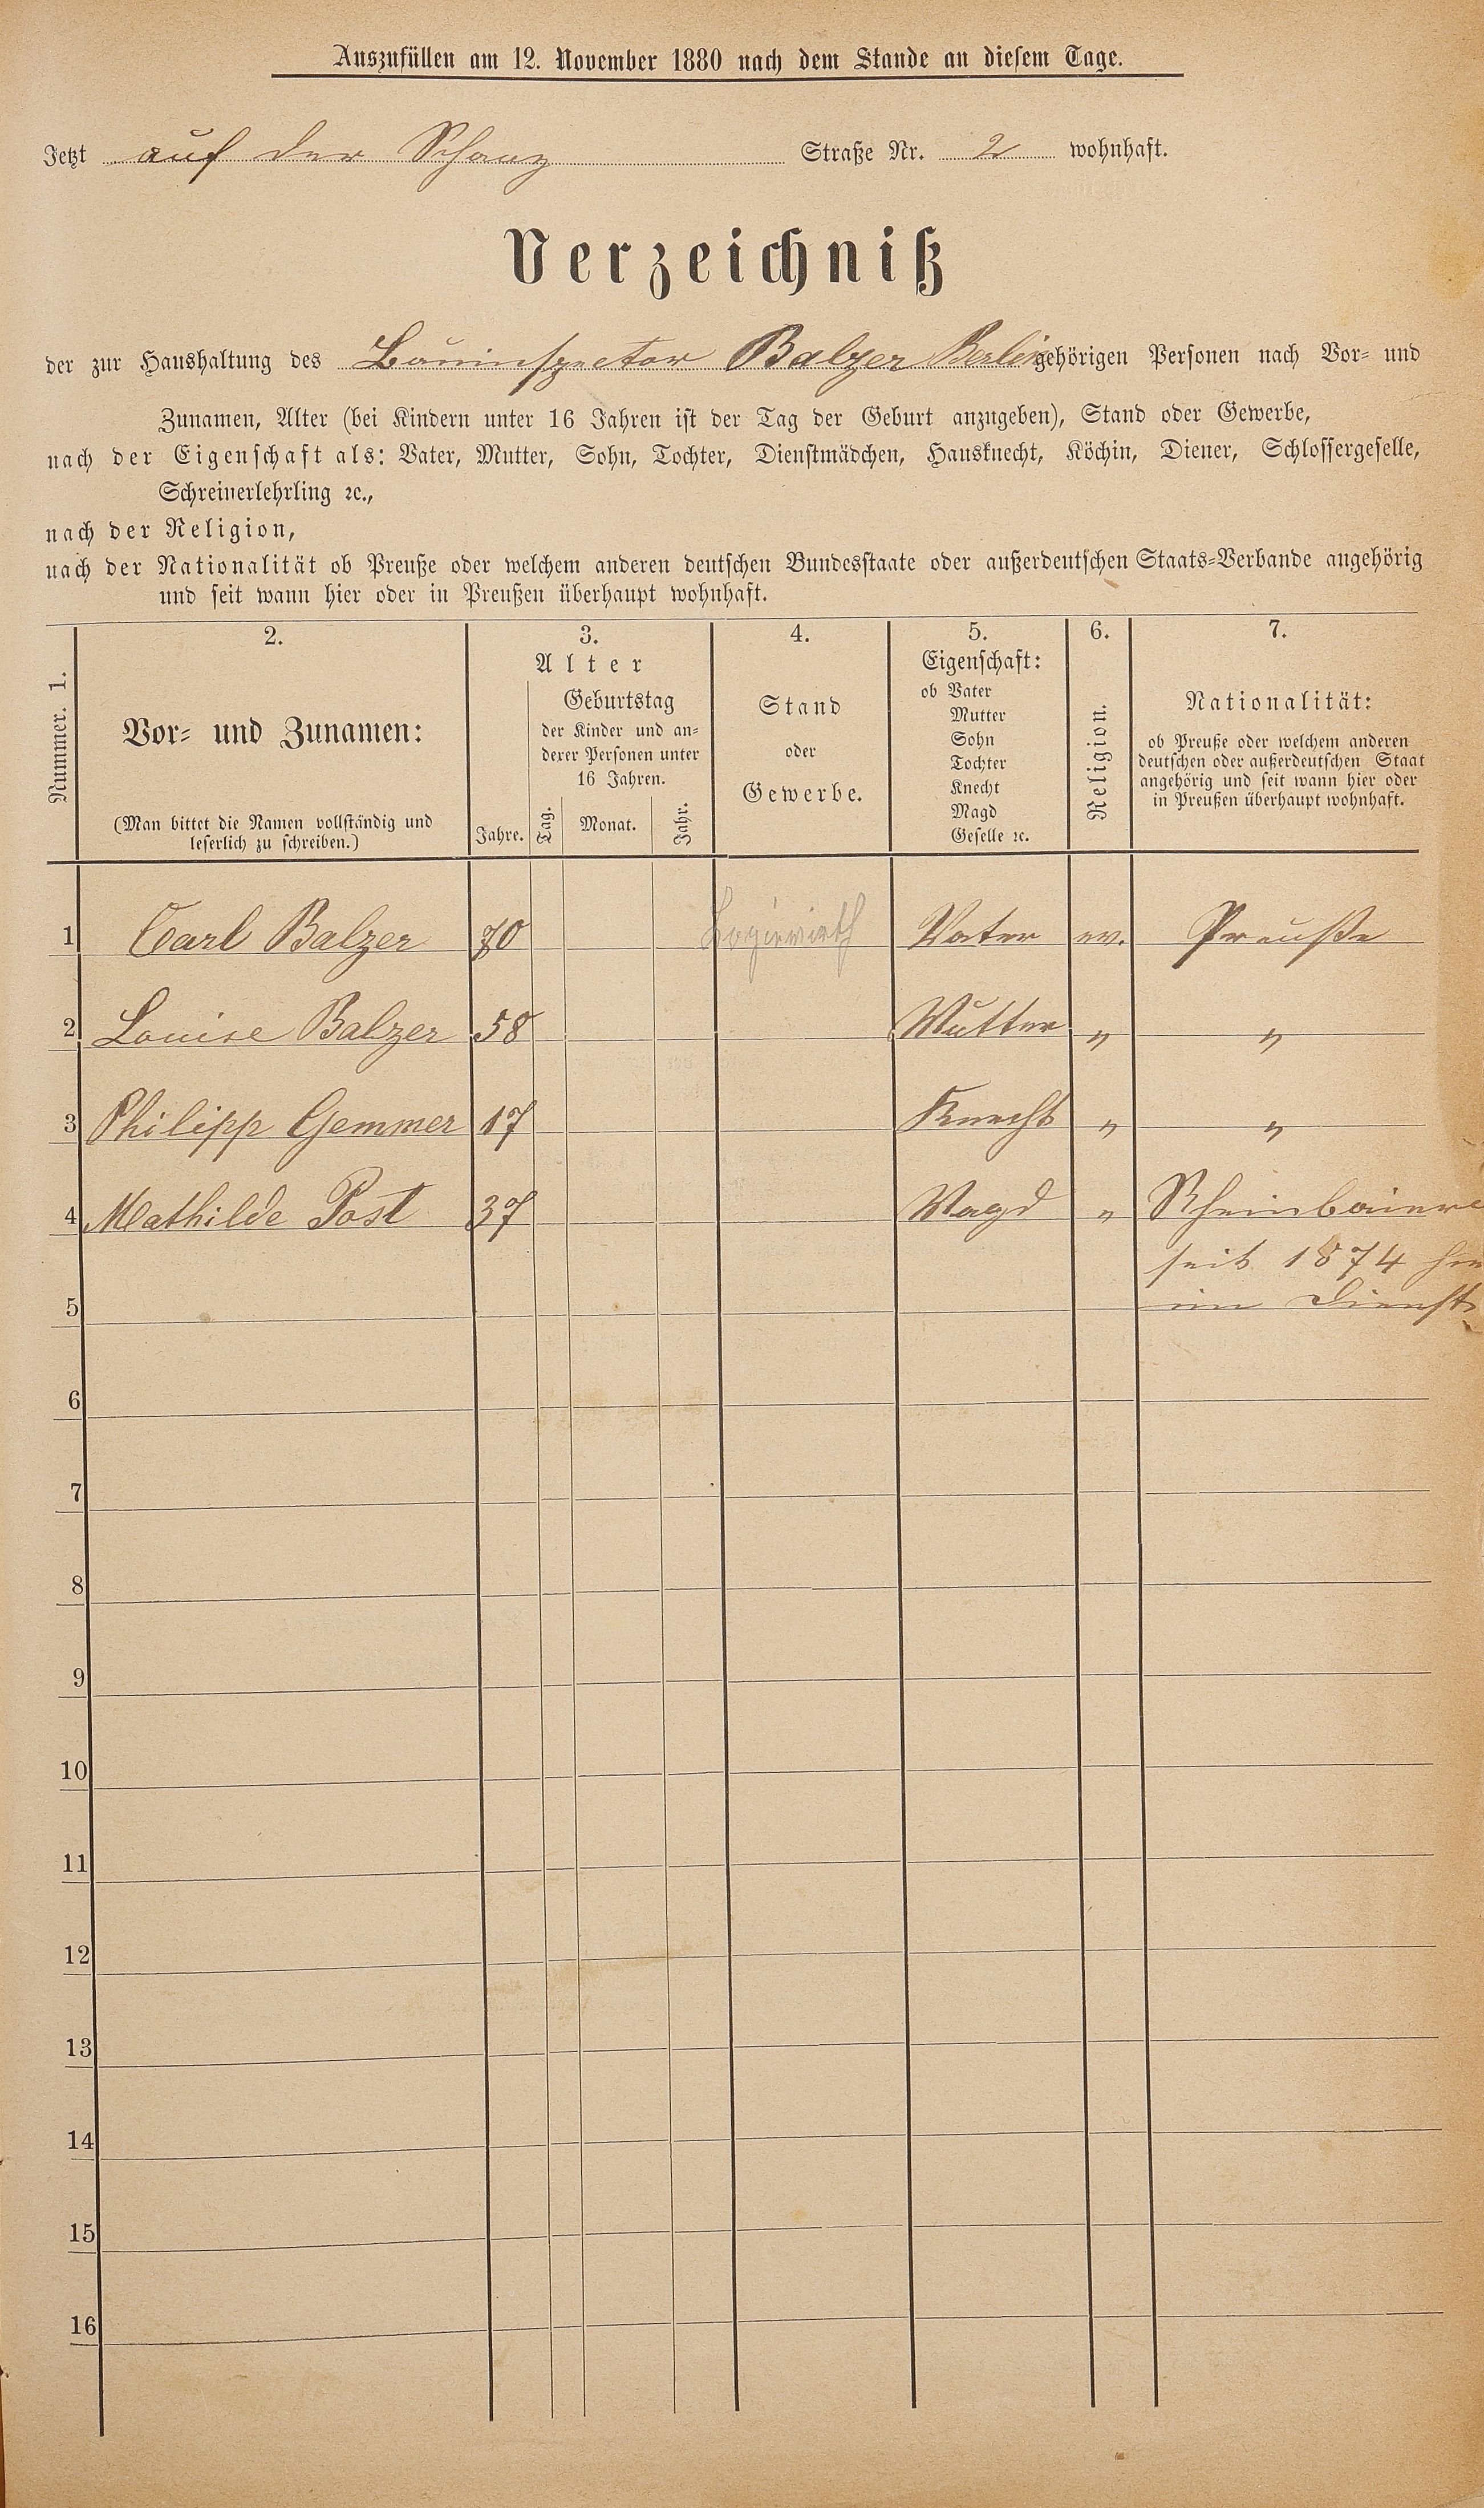 Auszufüllen am 12. November 1880 nach dem Stande an diesem Tage.
Jetzt auf der Schanz Straße Nr. 2 wohnhaft.
Verzeichniß
der zur Haushaltung des Bauinspector Balzer Berlin gehörigen Personen nach Vor- und
Zunamen, Alter (bei Kindern unter 16 Jahren ist der Tag der Geburt anzugeben), Stand oder Gewerbe,
nach der Eigenschaft als: Vater, Mutter, Sohn, Tochter, Dienstmädchen, Hausknecht, Köchin, Diener, Schlossergeselle,
Schreinerlehrling ꝛc.,
nach der Religion,
nach der Nationalität ob Preuße oder welchem anderen deutschen Bundesstaate oder außerdeutschen Staats-Verbande angehörig
und seit wann hier oder in Preußen überhaupt wohnhaft.
Nummer. 1.
2.
Vor- und Zunamen:
(Man bittet die Namen vollständig und
leserlich zu schreiben.)
3.
Alter
Jahre.
Geburtstag
der Kinder und an-
derer Personen unter
16 Jahren.
Tag. Monat. Jahr.
4.
Stand
oder
Gewerbe.
5.
Eigenschaft:
ob Vater
Mutter
Sohn
Tochter
Knecht
Magd
Geselle ꝛc.
6.
Religion.
7.
Nationalität:
ob Preuße oder welchem anderen
deutschen oder außerdeutschen Staat
angehörig und seit wann hier oder
in Preußen überhaupt wohnhaft.
1 Carl Balzer 70 Logirwirth Vater ev. Preuße
2 Louise Balzer 58 Mutter " "
3 Philipp Gemmer 17 Knecht " "
4 Mathilde Post 37 Magd " Rheinbaiern
seit 1874
im Dienst
5
6
7
8
9
10
11
12
13
14
15
16